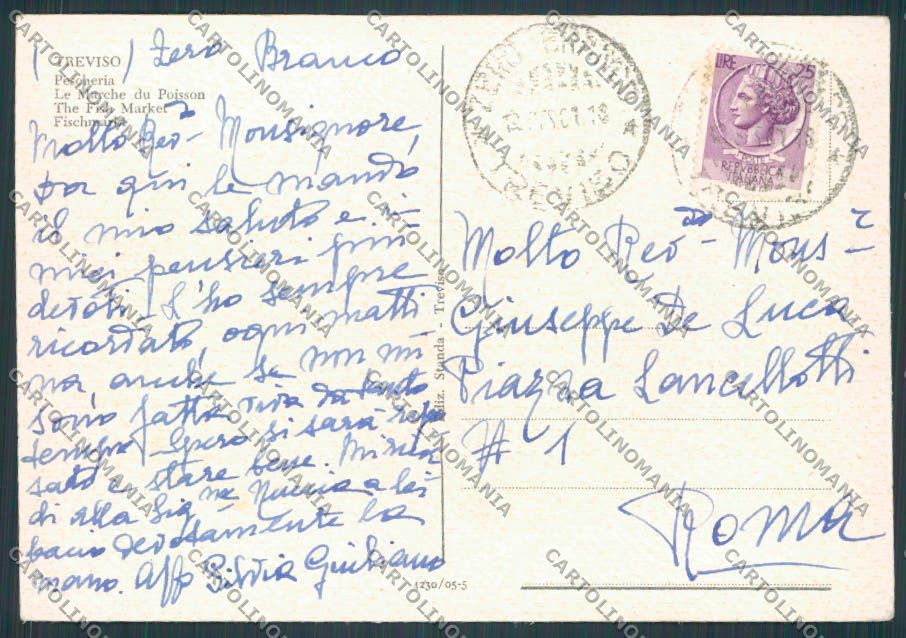 ( ) Zero Branco
TREVISO
Pescheria
Le Marche du Poisson
The Fish Market
Fischmarkt
Molto Rev. Monsignore,
Da qui le mando
il mio saluto e i
miei pensieri più
devoti - L'ho sempre
ricordato, ogni matti
na, anche se non mi
sono fatta viva da tanto
tempo. Spero si sarà ripo
sato e stare bene. Mi ricor
di alla Sig.na Nuccia a lei
bacio devotamente la
mano. Aff. Silvia Giuliano
Ediz. Standa - Treviso
1230/05-5
ZERO BRANCO
TREVISO
LIRE 25
POSTE
REPVBBLICA
ITALIANA
Molto Rev. Mons.
Giuseppe De Luca
Piazza Lancellotti
# 1
Roma
CARTOLINOMANIA